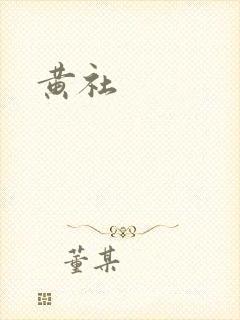 黄社
董某